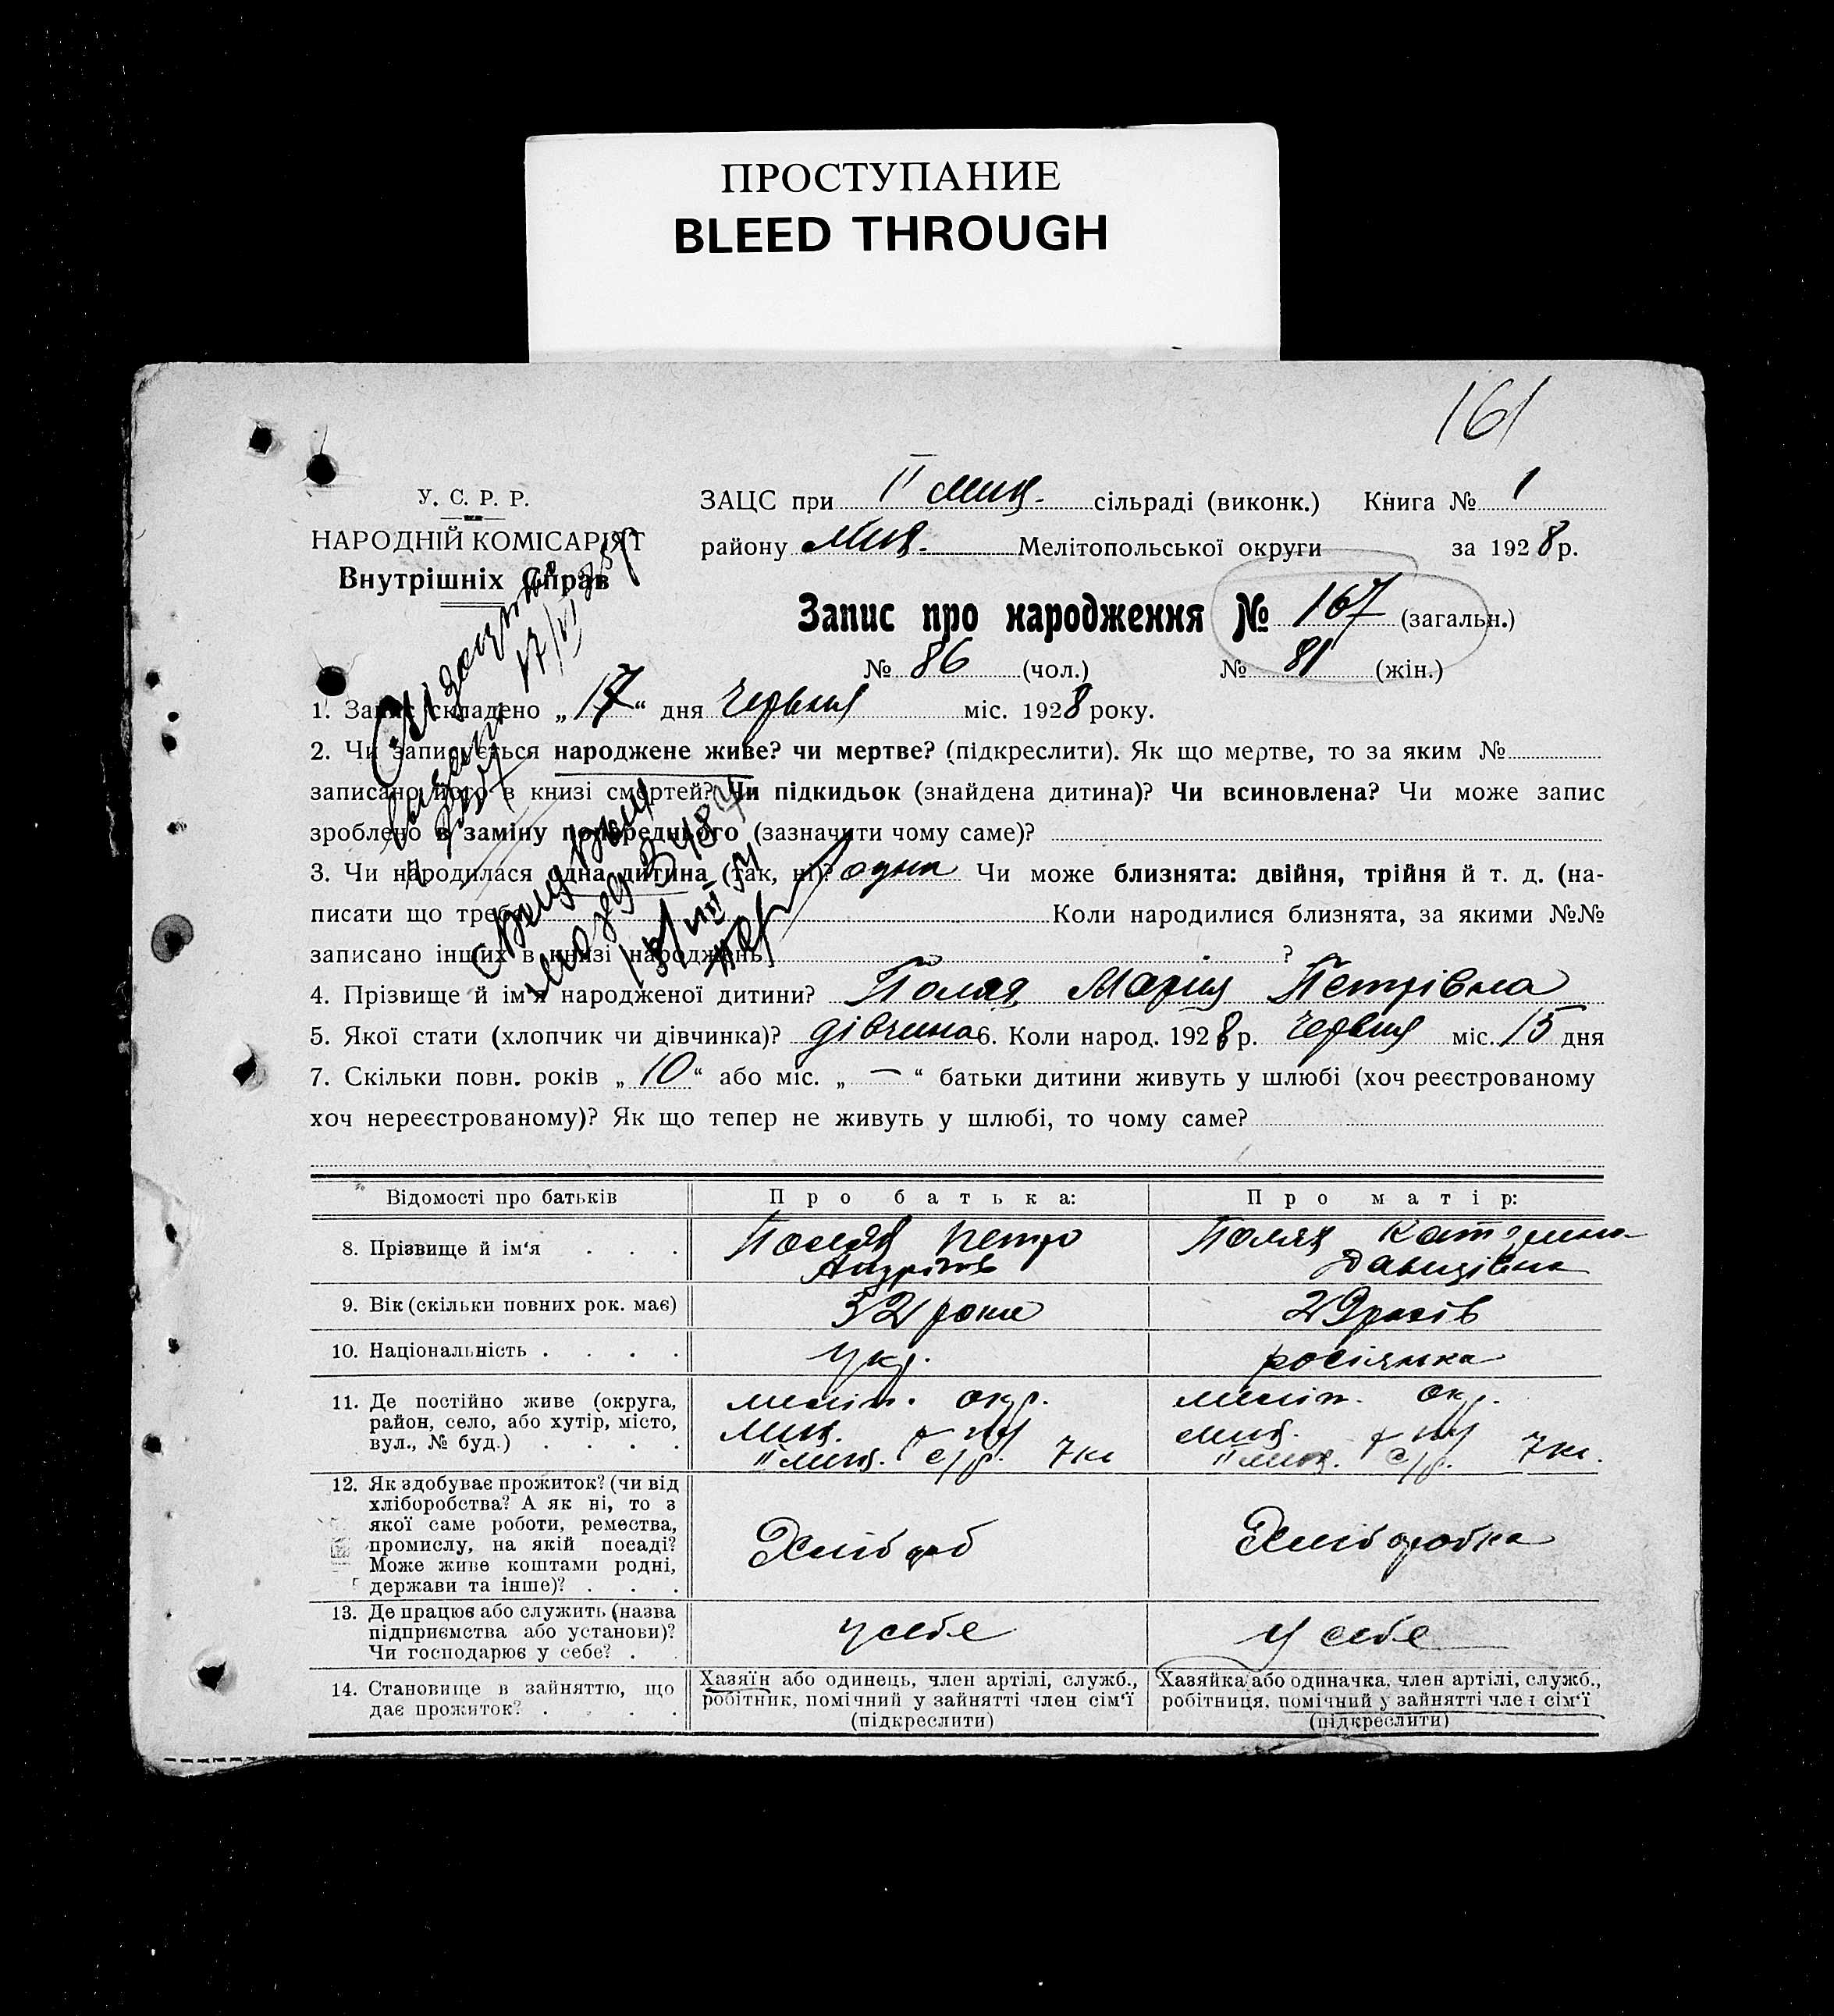 ПРОСТУПАНИЕ
BLEED THROUGH
161
У. С. Р. Р.
НАРОДНІЙ КОМІСАРІЯТ
Внутрішніх Справ
ЗАЦС при II Мих. сільраді (виконк.) Книга № 1
району Мих. Мелітопольської округи за 1928 р.
Запис про народження № 167 (загальн.)
№ 86 (чол.) № 81 (жін.)
1. Запис складено „17“ дня червня міс. 1928 року.
2. Чи записується народжене живе? чи мертве? (підкреслити). Як що мертве, то за яким №
записано його в книзі смертей? Чи підкидьок (знайдена дитина)? Чи всиновлена? Чи може запис
зроблено в заміну попереднього (зазначити чому саме)?
3. Чи народилася одна дитина (так, ні)? одна Чи може близнята: двійня, трійня й т. д. (на-
писати що треба Коли народилися близнята, за якими №№
записано інших в книзі народжень) ?
4. Прізвище й ім'я народженої дитини? Марія Петрівна
5. Якої стати (хлопчик чи дівчинка)? дівчина 6. Коли народ. 1928 р. червня міс. 15 дня
7. Скільки повн. років „10“ або міс. „—“ батьки дитини живуть у шлюбі (хоч реєстрованому
хоч нереєстрованому)? Як що тепер не живуть у шлюбі, то чому саме?
Відомості про батьків Про батька: Про матір:
8. Прізвище й ім'я . . . Петро Андріїв Катерина Давидівна
9. Вік (скільки повних рок. має) 32 роки 29 років
10. Національність . . . . Укр. росіянка
11. Де постійно живе (округа, район, село, або хутір, місто, вул., № буд.) . . . .
меліт. окр.
Мих. р-ну
II Мих. с/р.
меліт. окр.
Мих. р-ну
II Мих. с/р.
12. Як здобуває прожиток? (чи від хліборобства? А як ні, то з якої саме роботи, ремества, промислу, на якій посаді? Може живе коштами родні, держави та інше)? . . .
Хлібороб Хліборобка
13. Де працює або служить (назва підприємства або установи)? Чи господарює у себе? .
у себе у себе
14. Становище в зайняттю, що дає прожиток? . . . .
Хазяїн або одинець, член артілі, служб., робітник, помічний у зайнятті член сім'ї (підкреслити)
Хазяйка або одиначка, член артілі, служб., робітниця, помічний у зайнятті член сім'ї (підкреслити)